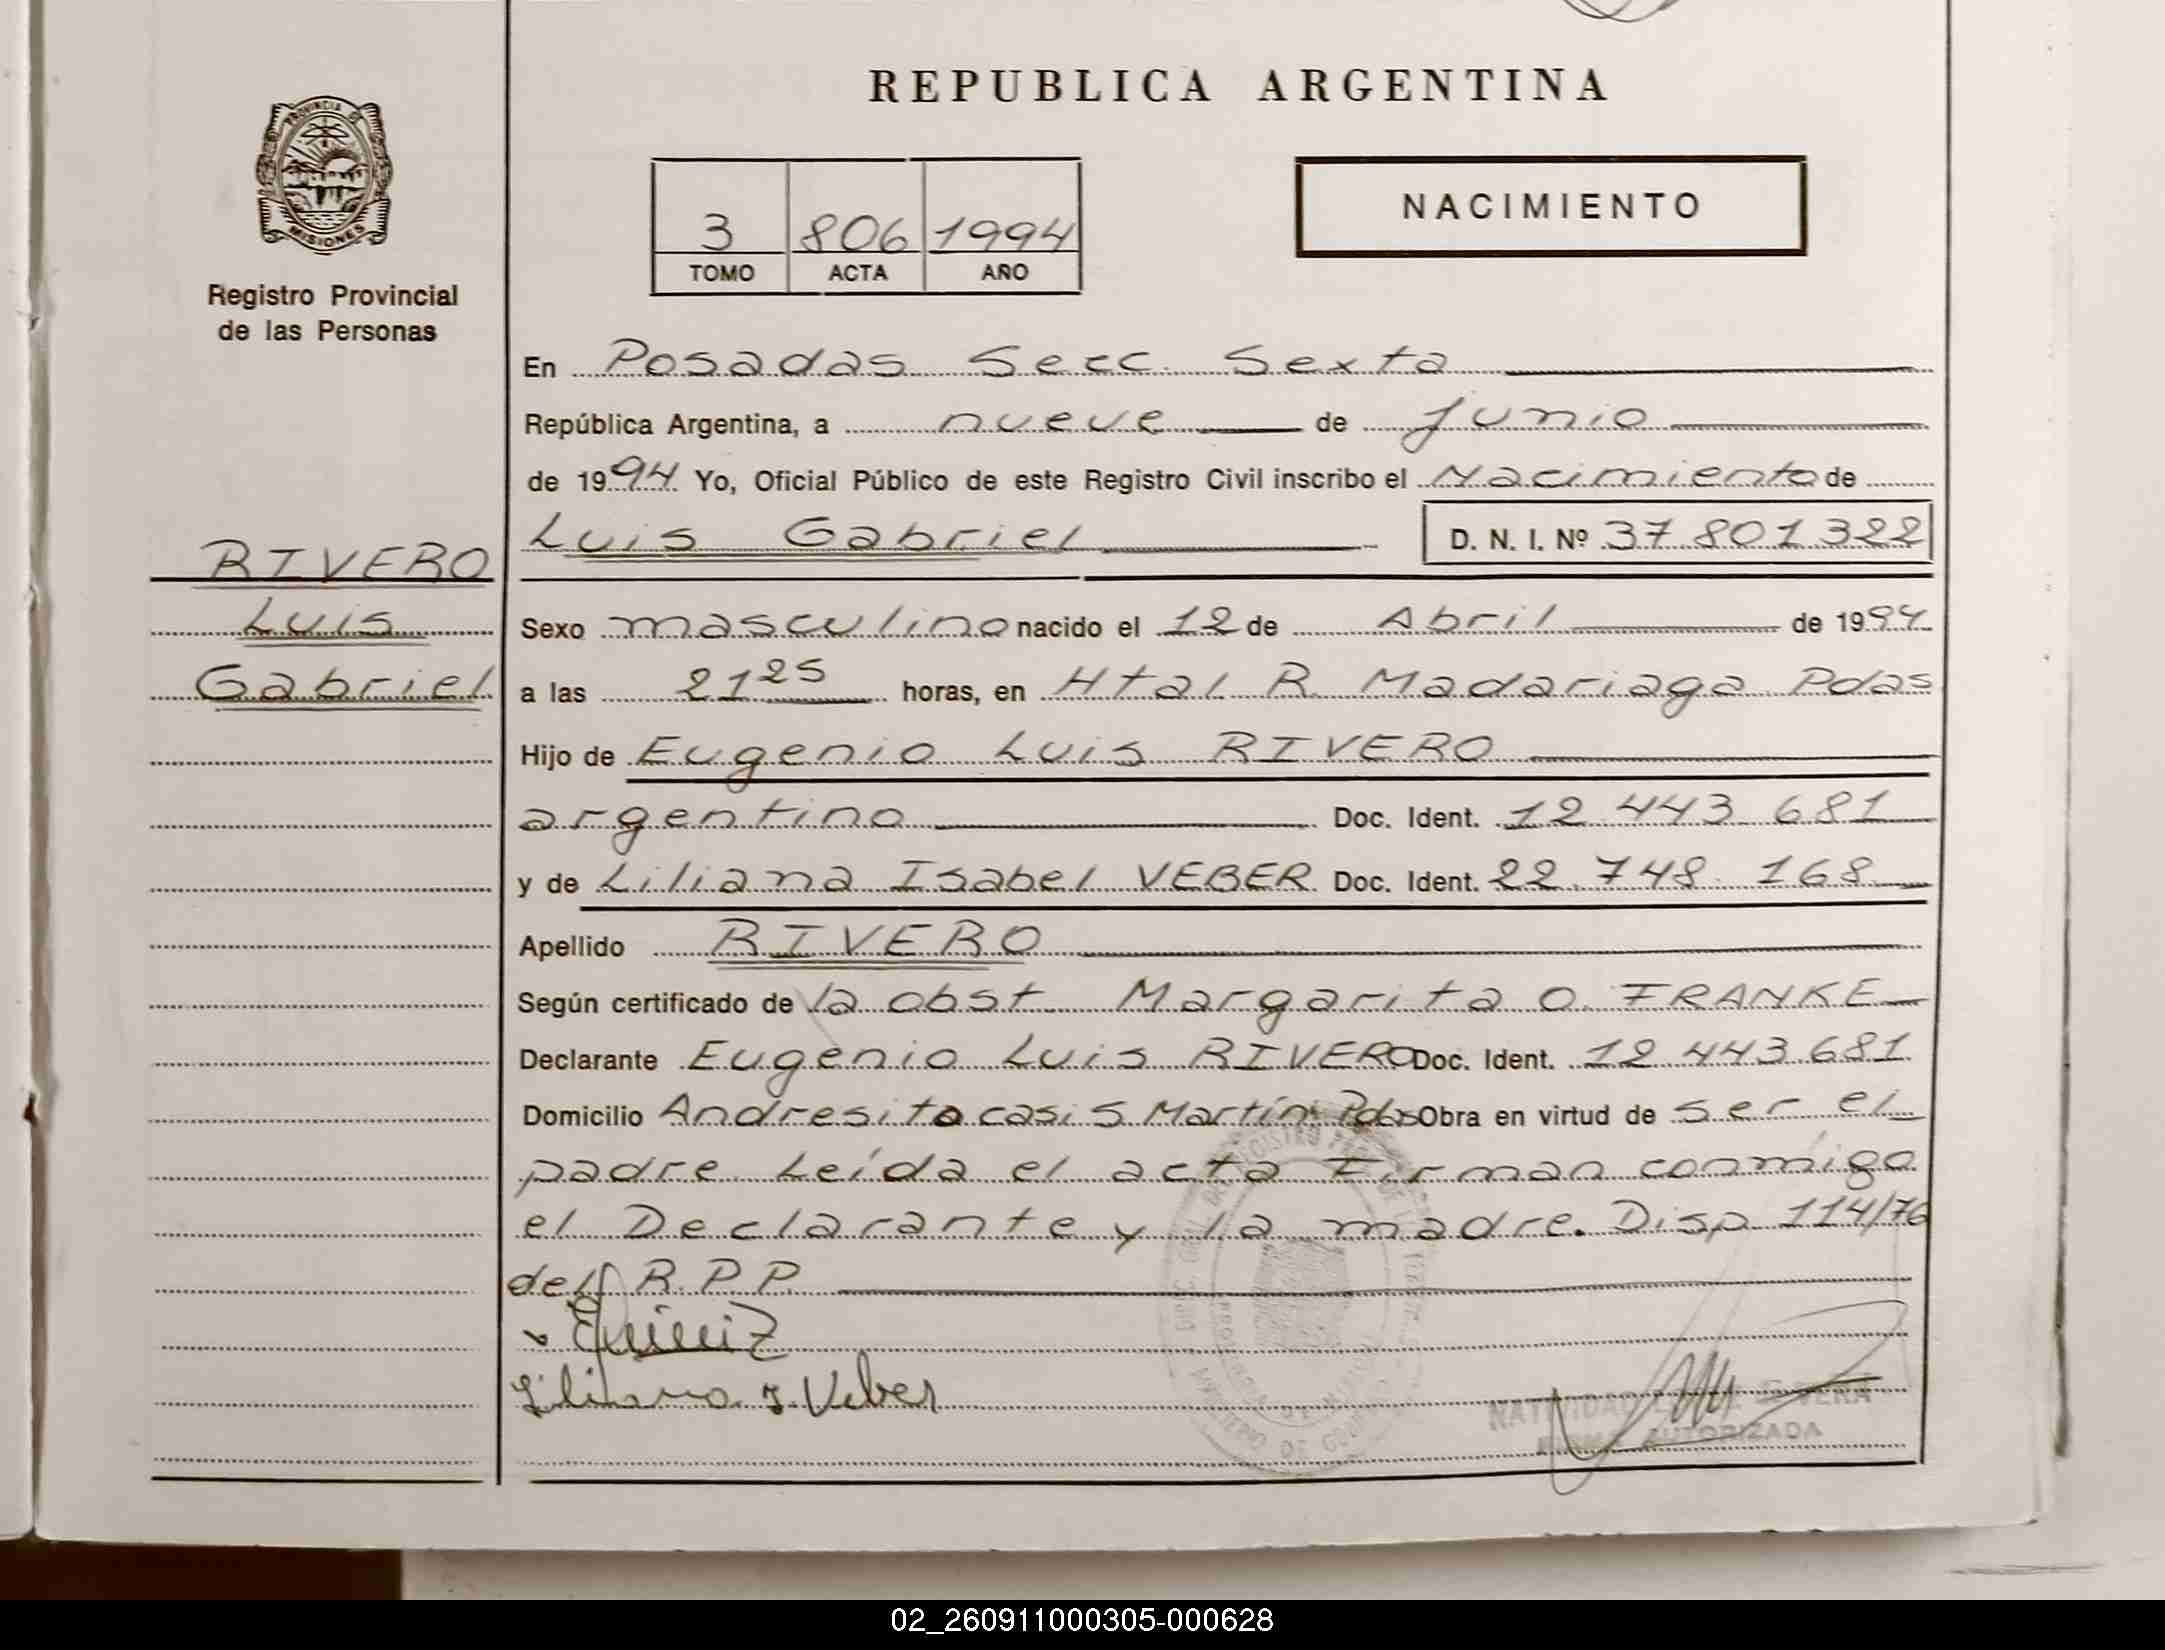 REPUBLICA ARGENTINA
PROVINCIA DE MISIONES
Registro Provincial
de las Personas
3 806 1994
TOMO ACTA AÑO
NACIMIENTO
En Posadas Secc. Sexta
República Argentina, a nueve de Junio
de 1994. Yo, Oficial Público de este Registro Civil inscribo el Nacimiento de
Luis Gabriel D. N. I. Nº 37.801.322
RIVERO
Luis
Gabriel
Sexo masculino nacido el 12 de Abril de 1994
a las 21 25 horas, en Htal R. Madariaga Pdas
Hijo de Eugenio Luis RIVERO
argentino Doc. Ident. 12.443.681
y de Liliana Isabel VEBER Doc. Ident. 22.748.168
Apellido RIVERO
Según certificado de la obst. Margarita O. FRANKE
Declarante Eugenio Luis RIVERO Doc. Ident. 12.443.681
Domicilio Andresito casi S. Martín Pdas Obra en virtud de ser el
padre. Leída el acta Firman conmigo
el Declarante y la madre. Disp. 114/76
del R.P.P.
Liliana I. Veber
AUTORIZADA
02_260911000305-000628